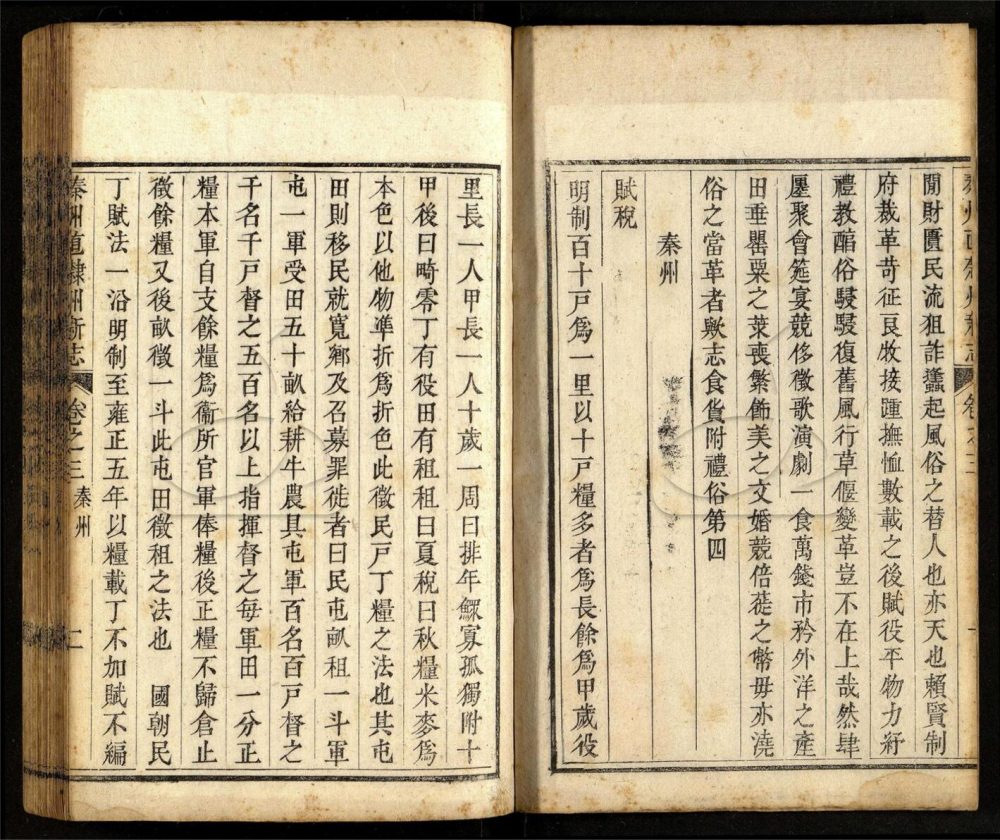 秦州直隸州新志 卷之三 一
閒財匱民流狙詐蠭起風俗之替人也亦天也賴賢制
府裁革苛征良牧接踵撫恤數載之後賦役平物力紓
禮教醅俗駸駸復舊風行草偃變革豈不在上哉然肆
廛聚會筵宴競侈徵歌演劇一食萬錢市矜外洋之產
田垂罌粟之莢喪繁飾美之文婚競倍蓰之幣毋亦澆
俗之當革者歟志食貨附禮俗第四
秦州
賦稅
明制百十戸爲一里以十戸糧多者爲長餘爲甲歲役
里長一人甲長一人十歲一周曰排年鰥寡孤獨附十
甲後曰畸零丁有役田有租租曰夏稅曰秋糧米麥爲
本色以他物準折爲折色此徵民戸丁糧之法也其屯
田則移民就寬鄉及召募罪徙者曰民屯畝租一斗軍
屯一軍受田五十畝給耕牛農具屯軍百名百戸督之
千名千戸督之五百名以上指揮督之每軍田一分正
糧本軍自支餘糧爲衞所官軍俸糧後正糧不歸倉止
徵餘糧又後畝徵一斗此屯田徵租之法也 國朝民
丁賦法一沿明制至雍正五年以糧載丁不加賦不編
秦州直隸州新志 卷之三 秦州 二